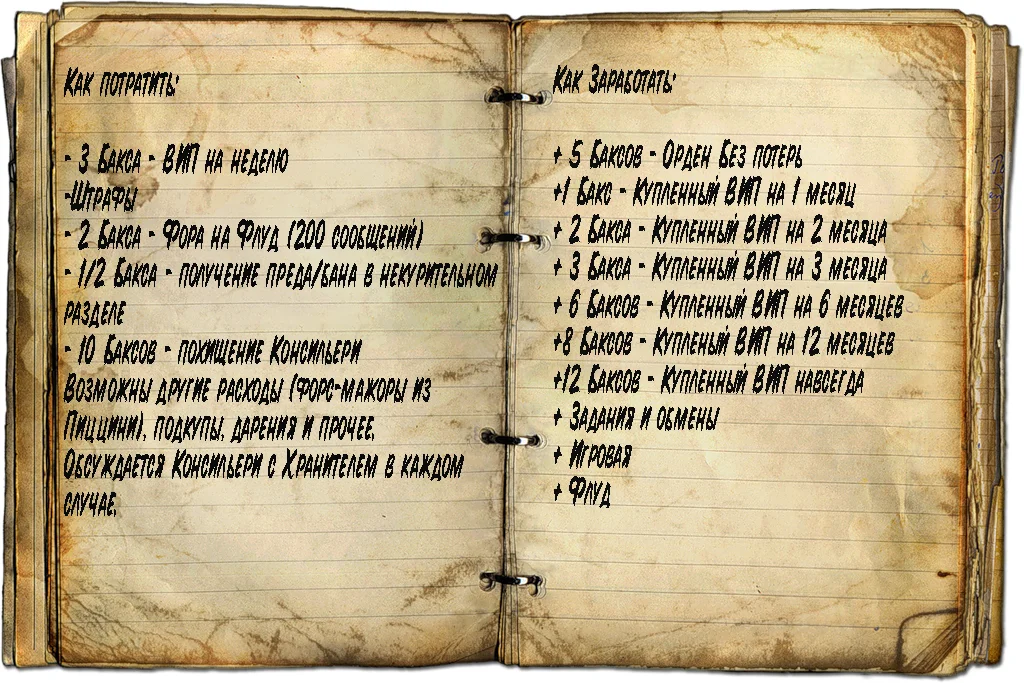 Как потратить:
- 3 Бакса - ВИП на неделю
-Штрафы
- 2 Бакса - Фора на Флуд (200 сообщений)
- 1/2 Бакса - получение преда/бана в некурительном
разделе
- 10 Баксов - похищение Консильери
Возможны другие расходы (форс-мажоры из
Пиццини), подкупы, дарения и прочее.
Обсуждается Консильери с Хранителем в каждом
случае.
Как Заработать:
+ 5 Баксов - Орден Без потерь
+1 Бакс - Купленный ВИП на 1 месяц
+ 2 Бакса - Купленный ВИП на 2 месяца
+ 3 Бакса - Купленный ВИП на 3 месяца
+ 6 Баксов - Купленный ВИП на 6 месяцев
+8 Баксов - Купленый ВИП на 12 месяцев
+12 Баксов - Купленный ВИП навсегда
+ Задания и обмены
+ Игровая
+ Флуд